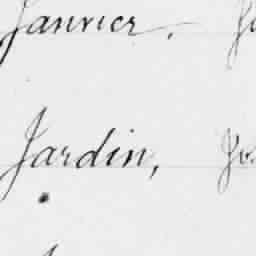 Janvier.
Jardin,